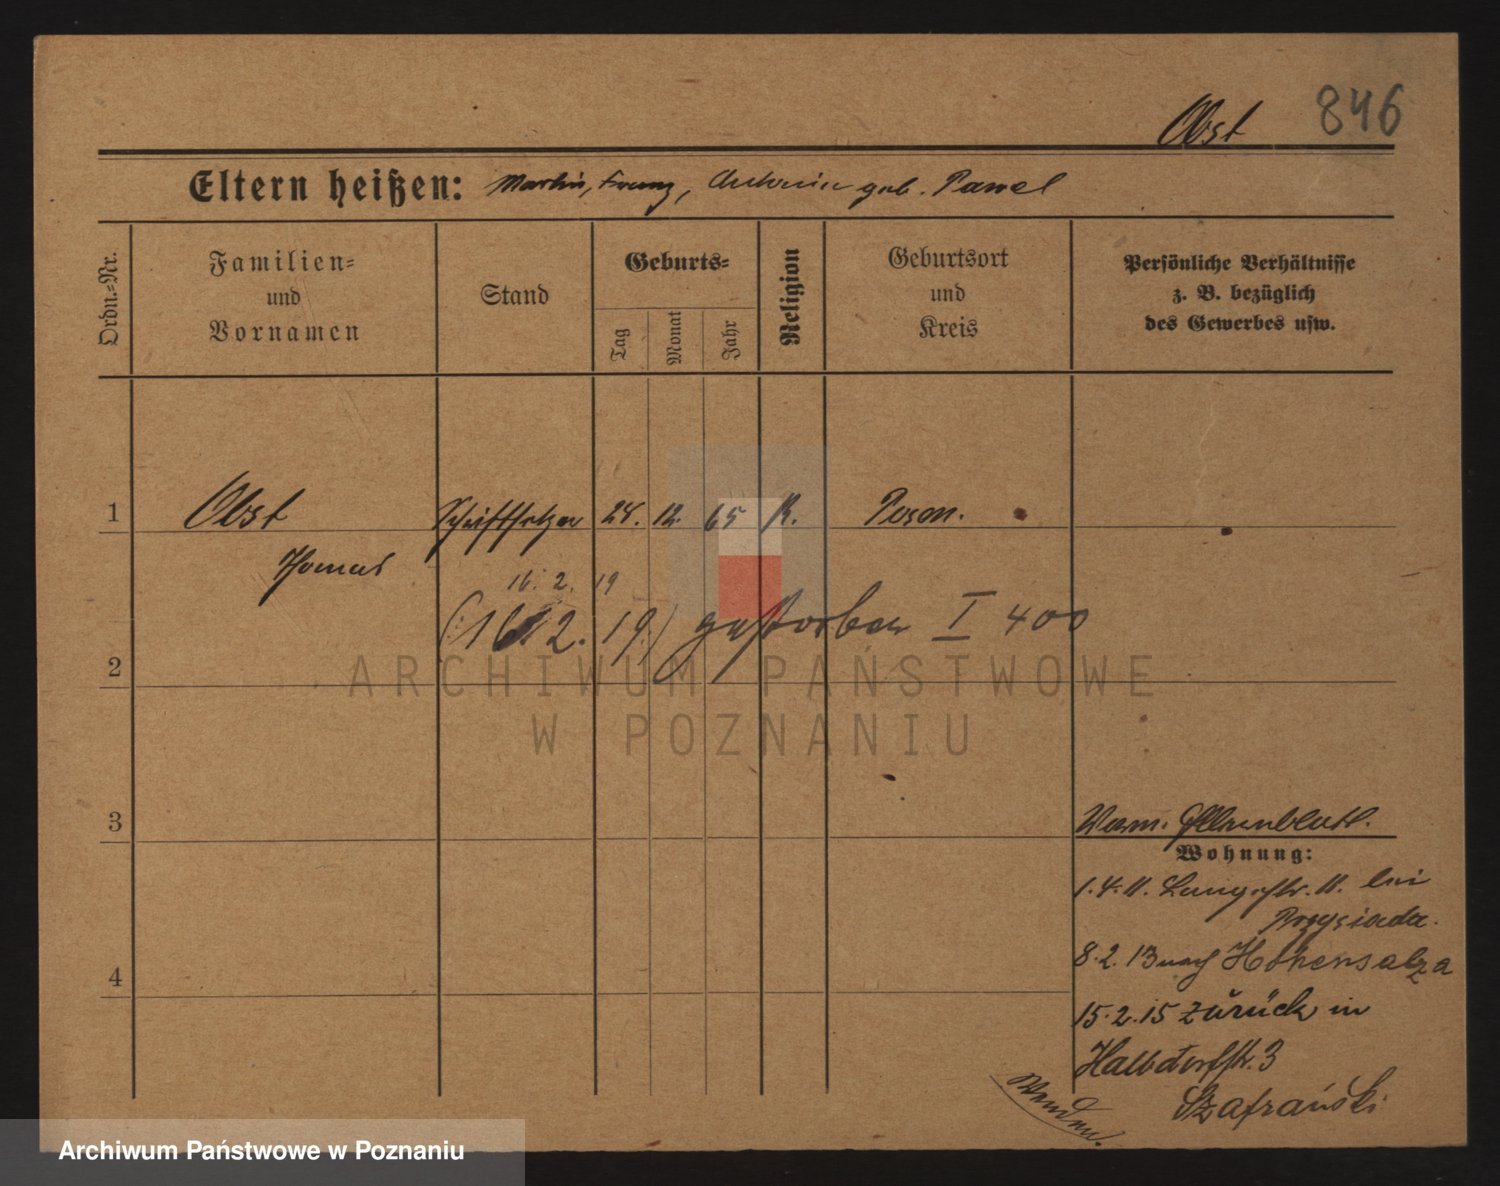 Obst 846
Eltern heißen: Martin, Franz, Antonie geb. Pawel
Ordn.-Nr.
Familien-
und
Vornamen
Stand
Geburts-
Tag
Monat
Jahr
Religion
Geburtsort
und
Kreis
Persönliche Verhältnisse
z. B. bezüglich
des Gewerbes usw.
1 Obst Schriftsetzer 24. 12. 65 K. Posen.
Thomas
16. 2. 19
(:16 2. 19:) gestorben I 400
2
ARCHIWUM PAŃSTWOWE
W POZNANIU
3
Wohnung:
1.4.11. Langestr. 11. bei
Przysiada.
8.2.13 nach Hohensalza
4
15.2.15 zurück in
Halbdorfstr. 3
Szafrański
Wenden.
Archiwum Państwowe w Poznaniu